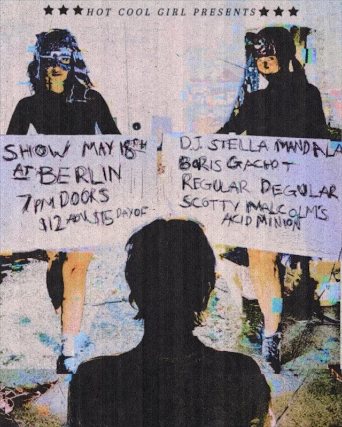 ★★★HOT COOL GIRL PRESENTS★★★
SHOW MAY 18TH
AT BERLIN
7PM DOORS
$12 ADV $15 DAY OF
DJ STELLA MANDALA
BORIS GACHOT
REGULAR DEGULAR
SCOTTY MALCOLM'S
ACID MINION